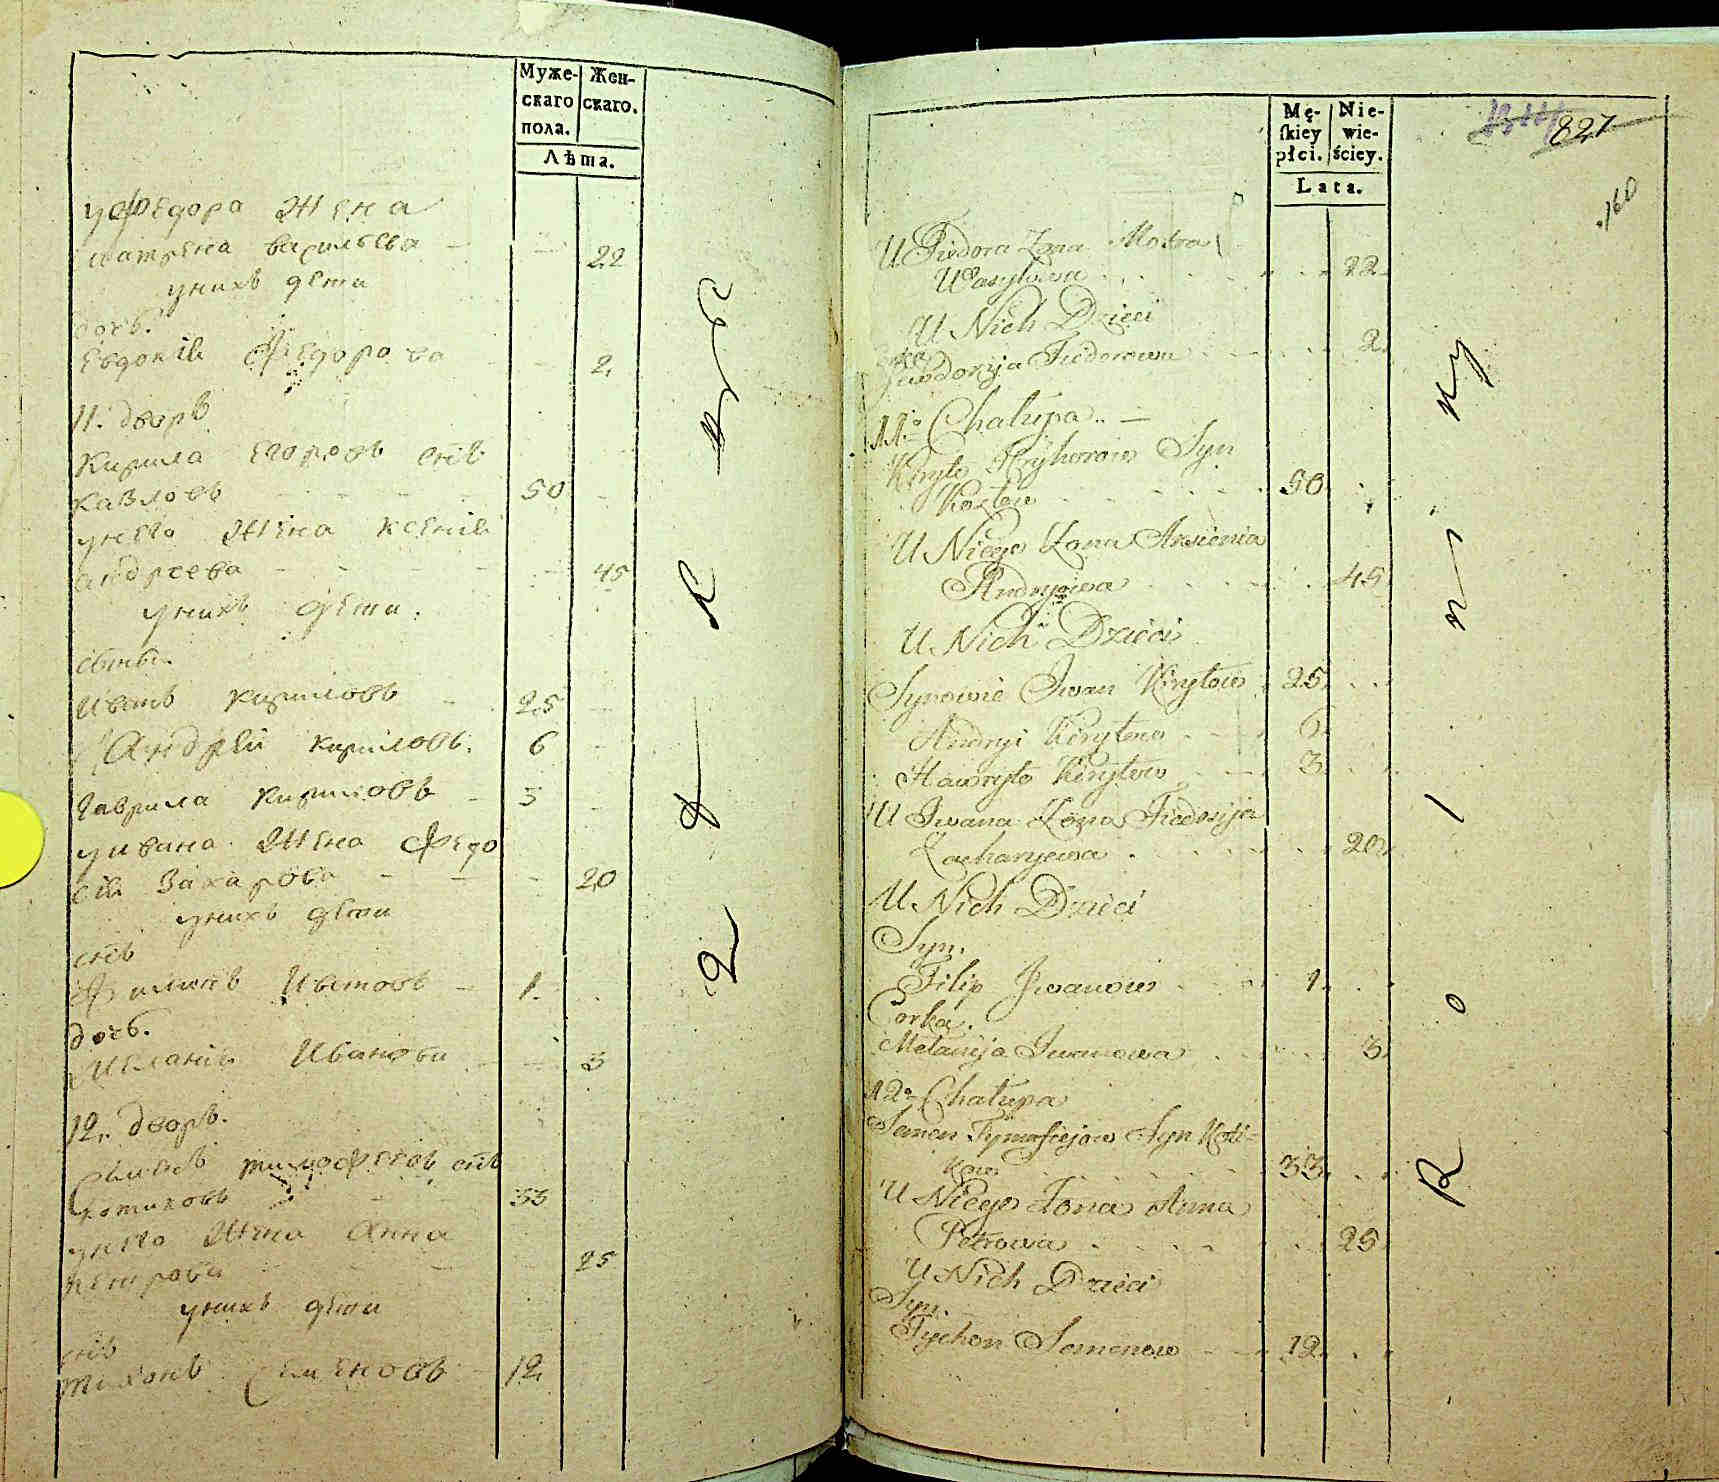 Муже-
скаго
пола.
Жен-
скаго.
Лѣта.
уФедора Жена
матрена василева 22
унихъ дети
дочь.
Евдокія Федорова 2
11. дворъ
Кирила Егоровъ снъ
казловъ 50
унего Жена Ксенія
андреева 45
унихъ дети.
сыны.
Иванъ кириловъ 25
Андрей кириловъ. 6
Гаврила кириловъ 3
уивана Жена Федо
сія Захарова 20
унихъ дети
снъ
Филипъ Ивановъ 1
дочь.
Меланія Иванова 3
12. дворъ.
Семенъ тимофеевъ снъ
котиковъ 33
унего Жена Анна
петрова 25
унихъ дети
снъ
тихонъ Семеновъ 12
Mę-
skiey
płci.
Nie-
wie-
ściey.
Lata.
827
160
U Fiedora Zona Motra
Wasylowa 22
U Nich Dzieci
Jewdokija Fiedorowa 2
11o Chałupa
Kiryło Hryhorow Syn
Kozłow 50
U Niego Zona Axienia
Andryiewa 45
U Nich Dzieci
Synowie Iwan Kiryłow 25
Andryi Kiryłow 6
Hawryło Kiryłow 3
U Iwana Zona Fiedosija
Zacharyewa 20
U Nich Dzieci
Syn.
Filip Iwanow 1
Corka.
Mełanija Iwanowa 3
12o Chałupa
Semen Tymofiejow Syn Koti=
kow 33
U Niego Zona Anna
Petrowa 25
U Nich Dzieci
Syn.
Tychon Semenow 12